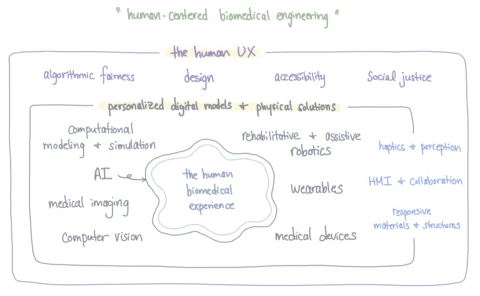 "human-centered biomedical engineering"
the human UX
algorithmic fairness
design
accessibility
Social justice
personalized digital models + physical solutions
computational
modeling + simulation
AI
medical imaging
Computer vision
the human
biomedical
experience
rehabilitative + assistive
robotics
wearables
medical devices
haptics + perception
HMI + Collaboration
responsive
materials + structures